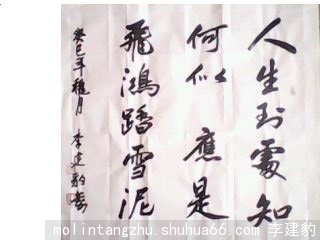 人生到處知
何似應是
飛鴻踏雪泥
癸巳年穐月 李建豹書
molintangzhu.shuhua66.com 李建豹